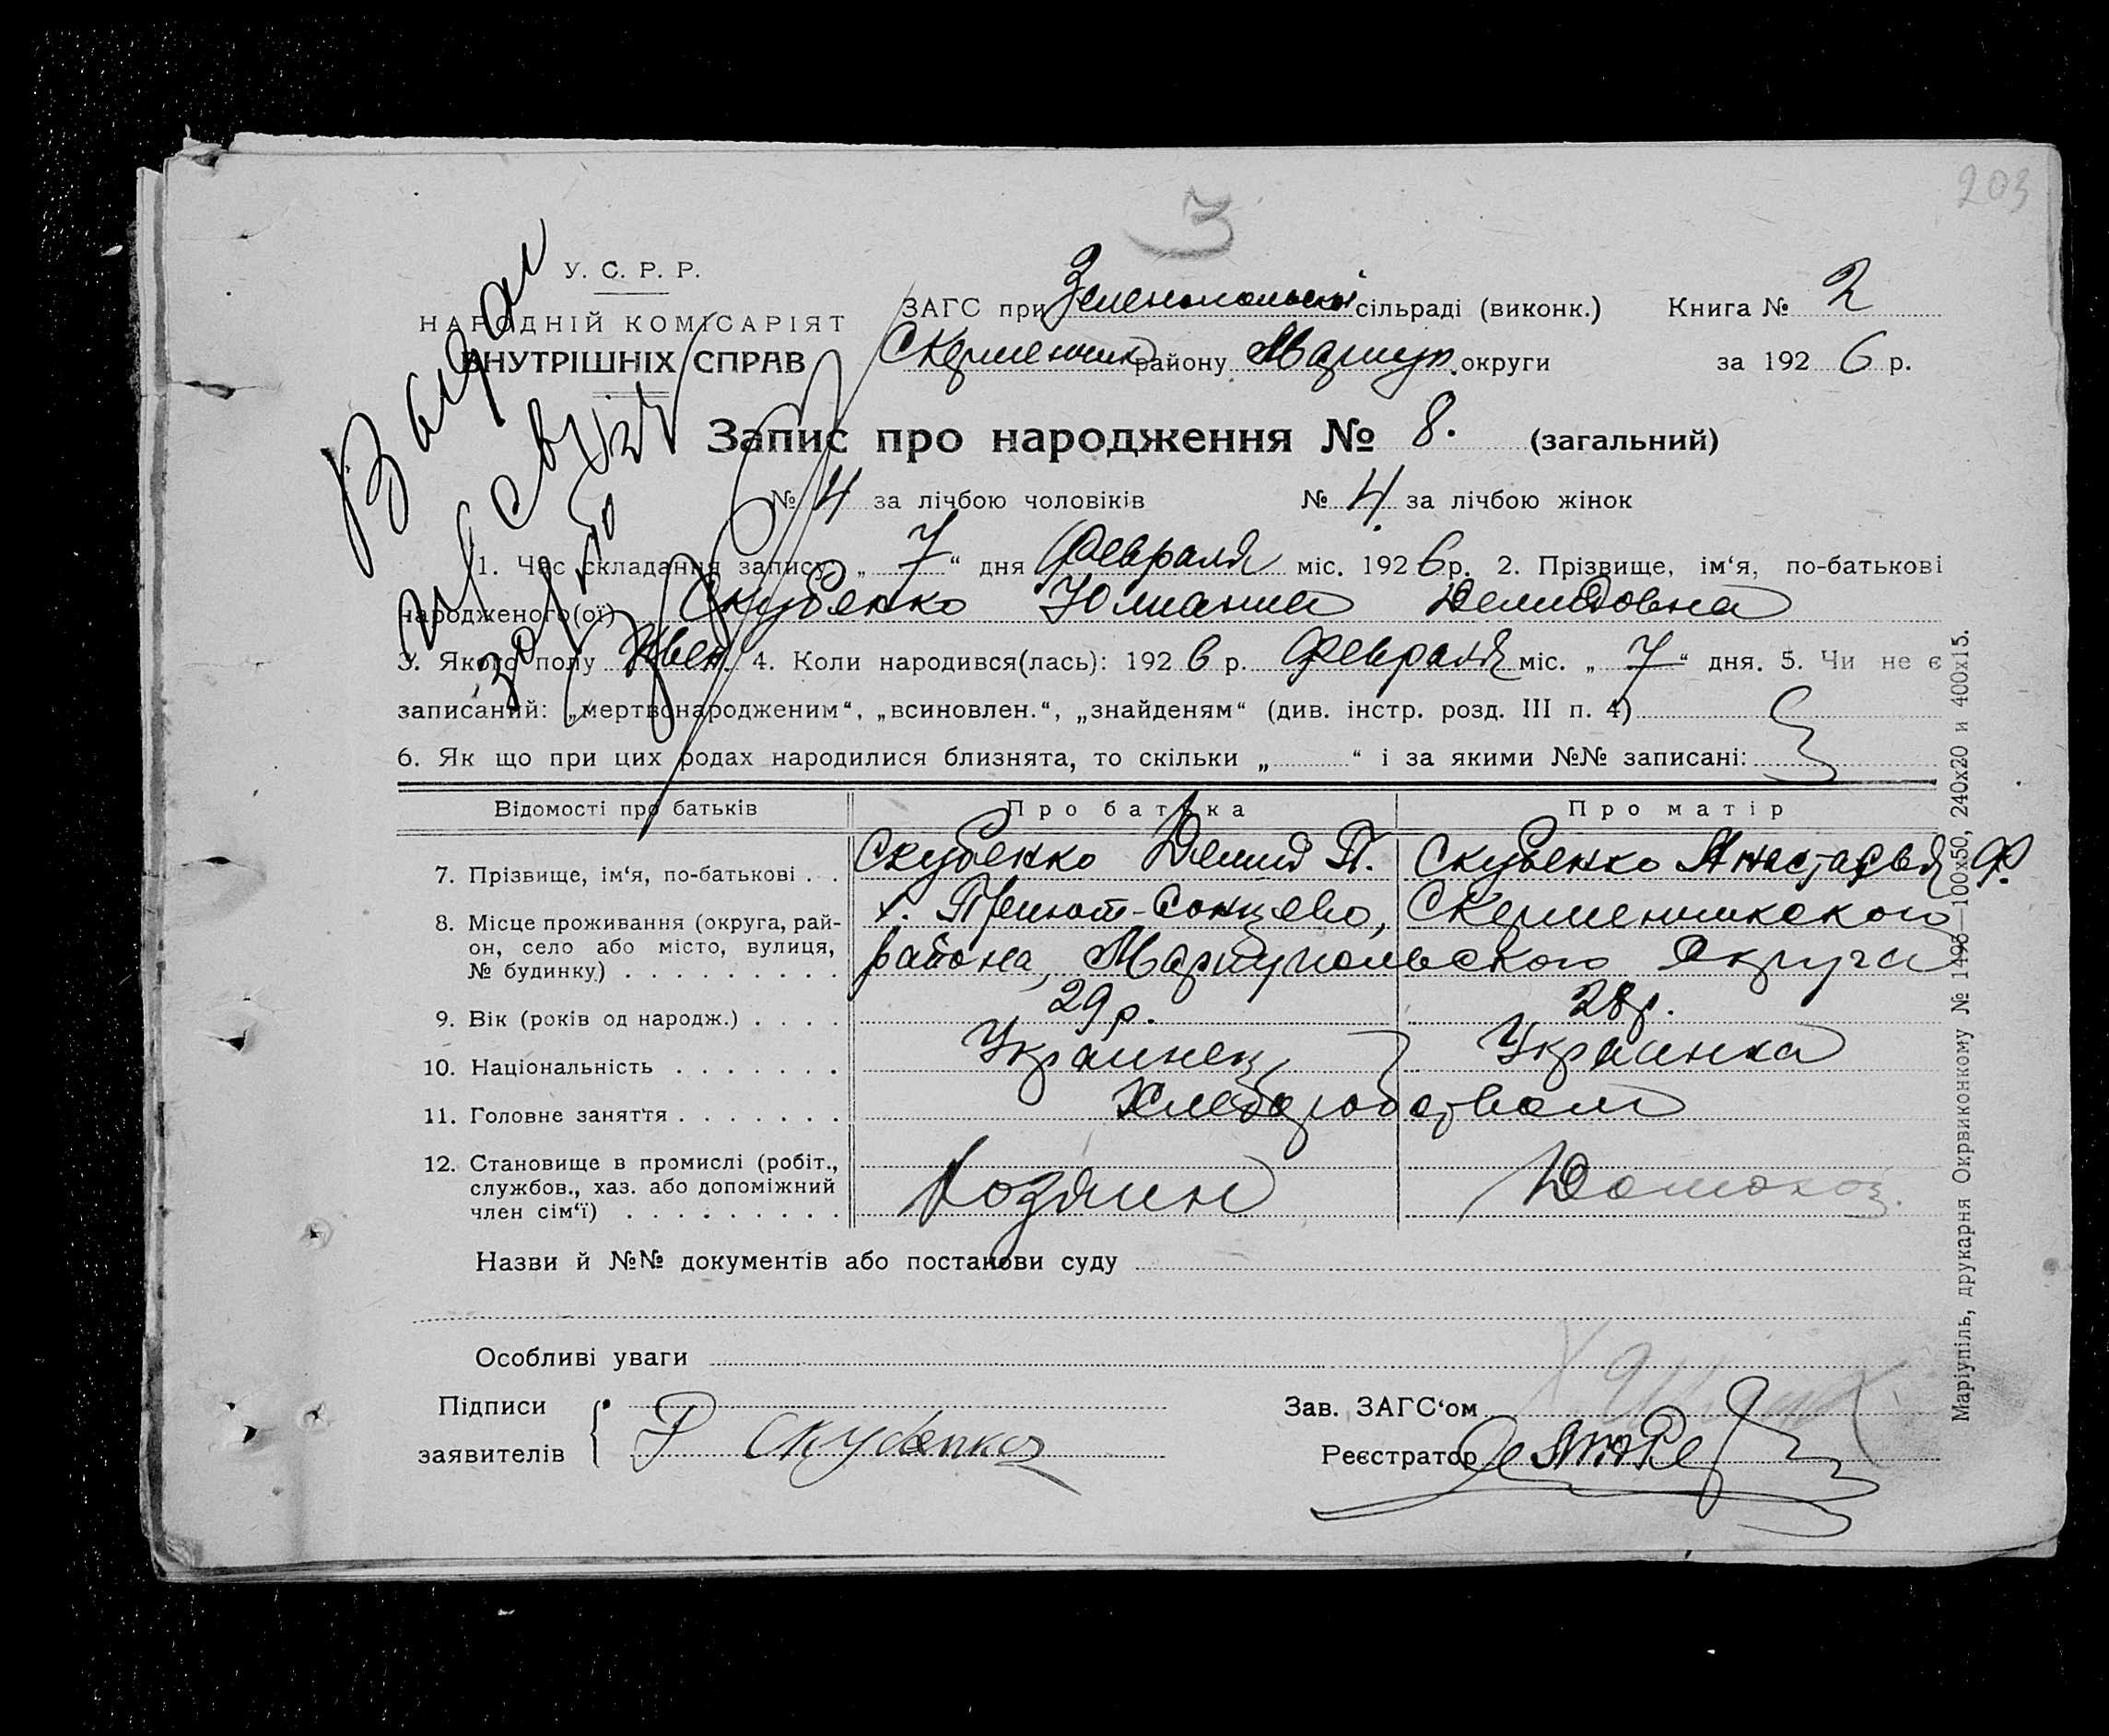 203
3
У. С. Р. Р.
НАРОДНІЙ КОМІСАРІЯТ
ВНУТРІШНІХ СПРАВ
ЗАГС при Зеленопольской сільраді (виконк.) Книга № 2
Скермончик району Мариуп. округи за 1926 р.
Запис про народження № 8. (загальний)
№ 4 за лічбою чоловіків № 4. за лічбою жінок
1. Час складання запису „7“ дня Февраля міс. 1926 р. 2. Прізвище, ім‘я, по-батькові
народженого(ої) Скубенко Юлиания Демидовна
3. Якого полу Жен. 4. Коли народився(лась): 1926 р. Февраля міс. „7“ дня. 5. Чи не є
записаний: „мертвонародженим“, „всиновлен.“, „знайденям“ (див. інстр. розд. III п. 4)
6. Як що при цих родах народилися близнята, то скільки „ “ і за якими №№ записані:
Відомості про батьків Про батька Про матір
7. Прізвище, ім‘я, по-батькові . . Скубенко Демид П. Скубенко Анастасья Ф.
8. Місце проживання (округа, рай-
он, село або місто, вулиця,
№ будинку) . . . . . . . . .
х. Приют-Сонцево, Скермончикского
района, Мариупольского Округа
9. Вік (років од народж.) . . . . 29 р. 28 р.
10. Національність . . . . . . . Украинец Украинка
11. Головне заняття . . . . . . . Хлебороб ством
12. Становище в промислі (робіт.,
службов., хаз. або допоміжний
член сім‘ї) . . . . . . . . .
Хозяин Домохоз.
Назви й №№ документів або постанови суду
Особливі уваги
Підписи
заявителів
Скубенко
Зав. ЗАГС‘ом
Реєстратор
Маріупіль, друкарня Окрвиконкому № 1495—100х50, 240х20 и 400х15.